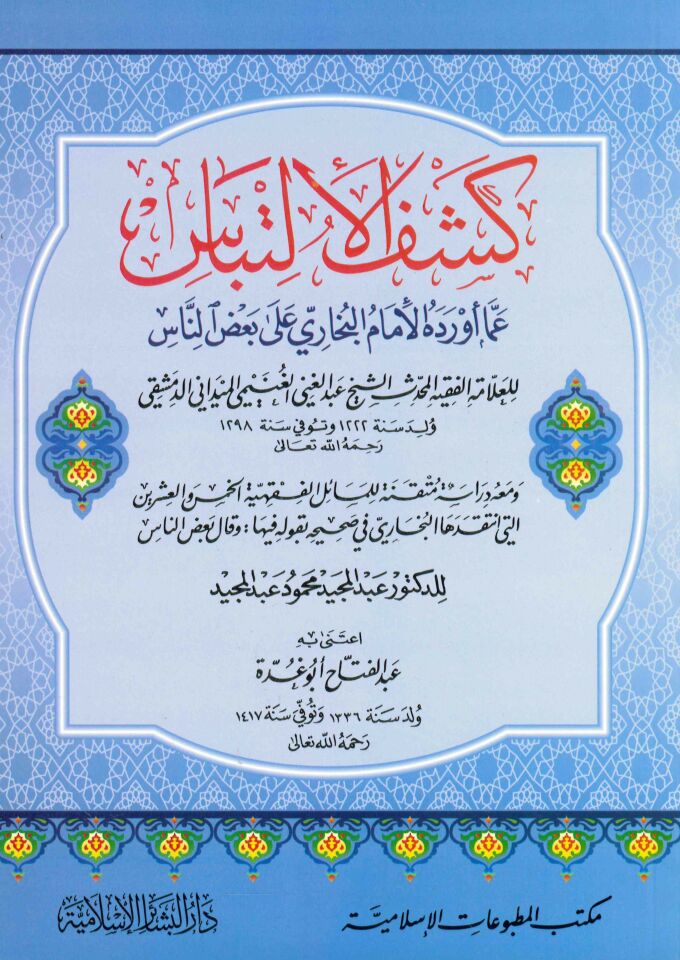 كشف الالتباس
عمّا أورده الإمام البخاريّ على بعض الناس
للعلامة الفقيه المحدث الشيخ عبد الغني الغنيمي الميداني الدمشقي
ولد سنة ١٢٢٢ وتوفي سنة ١٢٩٨
رحمه الله تعالى
ومعه دراسة متقنة للمسائل الفقهية الخمس والعشرين
التي انتقدها البخاريّ في صحيحه بقوله فيها: وقال بعض الناس
للدكتور عبد المجيد محمود عبد المجيد
اعتنى به
عبد الفتاح أبو غدّة
ولد سنة ١٣٣٦ وتوفّي سنة ١٤١٧
رحمه الله تعالى
مكتب المطبوعات الإسلامية
دار البشائر الإسلامية